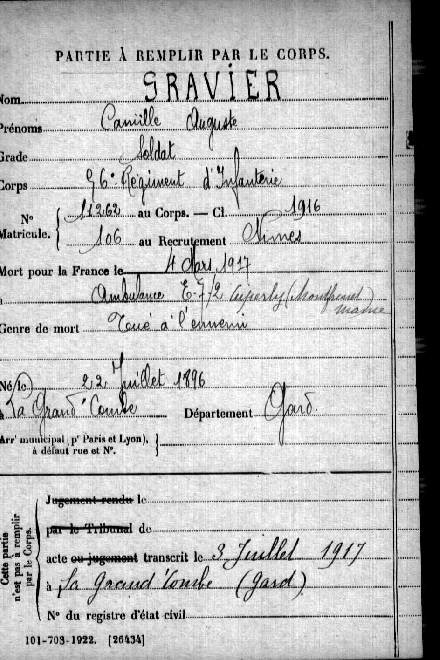 PARTIE À REMPLIR PAR LE CORPS.
Nom GRAVIER
Prénoms Camille Auguste
Grade Soldat
Corps 96e Régiment d'Infanterie
N° Matricule. { 11262 au Corps. — Cl. 1916
106 au Recrutement Nimes
Mort pour la France le 4 Mars 1917
à Ambulance
Genre de mort Tué à l'ennemi
Né le 22 Juillet 1896
à La Grand'Combe Département Gard.
Arr' municipal (p' Paris et Lyon), à défaut rue et N°. }
Cette partie n'est pas à remplir par le Corps.
Jugement rendu le
par le Tribunal de
acte ou jugement transcrit le 3 Juillet 1917
à La Grand'Combe (Gard)
N° du registre d'état civil
101-708-1922. [26434]